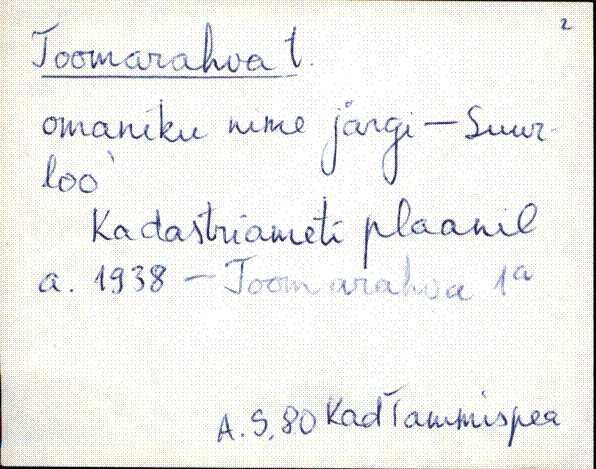 2
Toomarahva t.
omaniku nime järgi – Suur-
loo`
Kadastriameti plaanil
a. 1938 – Toomarahva 1a
A.S. 80 Kad Tammispea